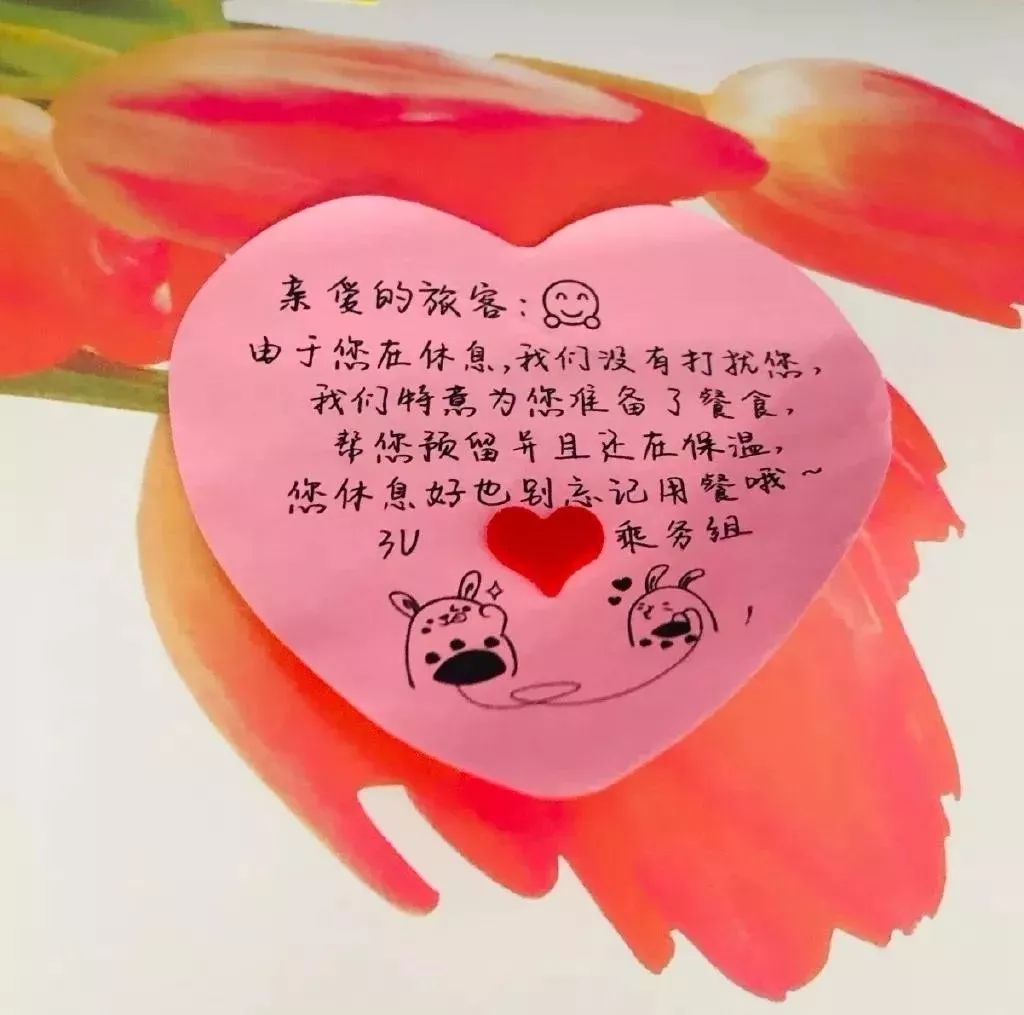 亲爱的旅客：
由于您在休息,我们没有打扰您,
我们特意为您准备了餐食,
帮您预留并且还在保温,
您休息好也别忘记用餐哦~
3U 乘务组